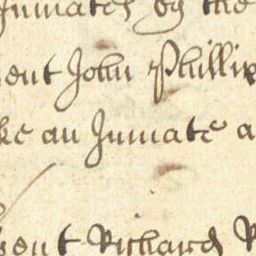 Inmates by the
ent John Phillip
ke an Inmate a
sent Richard R